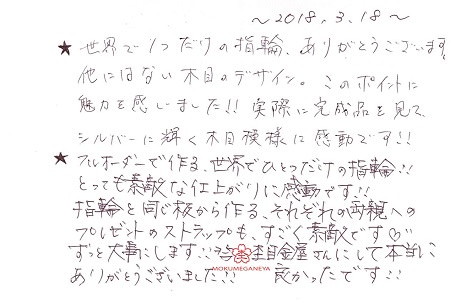 ～2018.3.18～
★ 世界で1つだけの指輪、ありがとうございます。
他にはない木目のデザイン。このポイントに
魅力を感じました!! 実際に完成品を見て、
シルバーに輝く木目模様に感動です!!
★ フルオーダーで作る、世界でひとつだけの指輪!!
とっても素敵な仕上がりに感動です!!
指輪と同じ板から作る、それぞれの両親への
プレゼントのストラップも、すごく素敵です♡
ずっと大事にします!! 杢目金屋さんにして本当に
MOKUMEGANEYA
ありがとうございました!! 良かったです!!